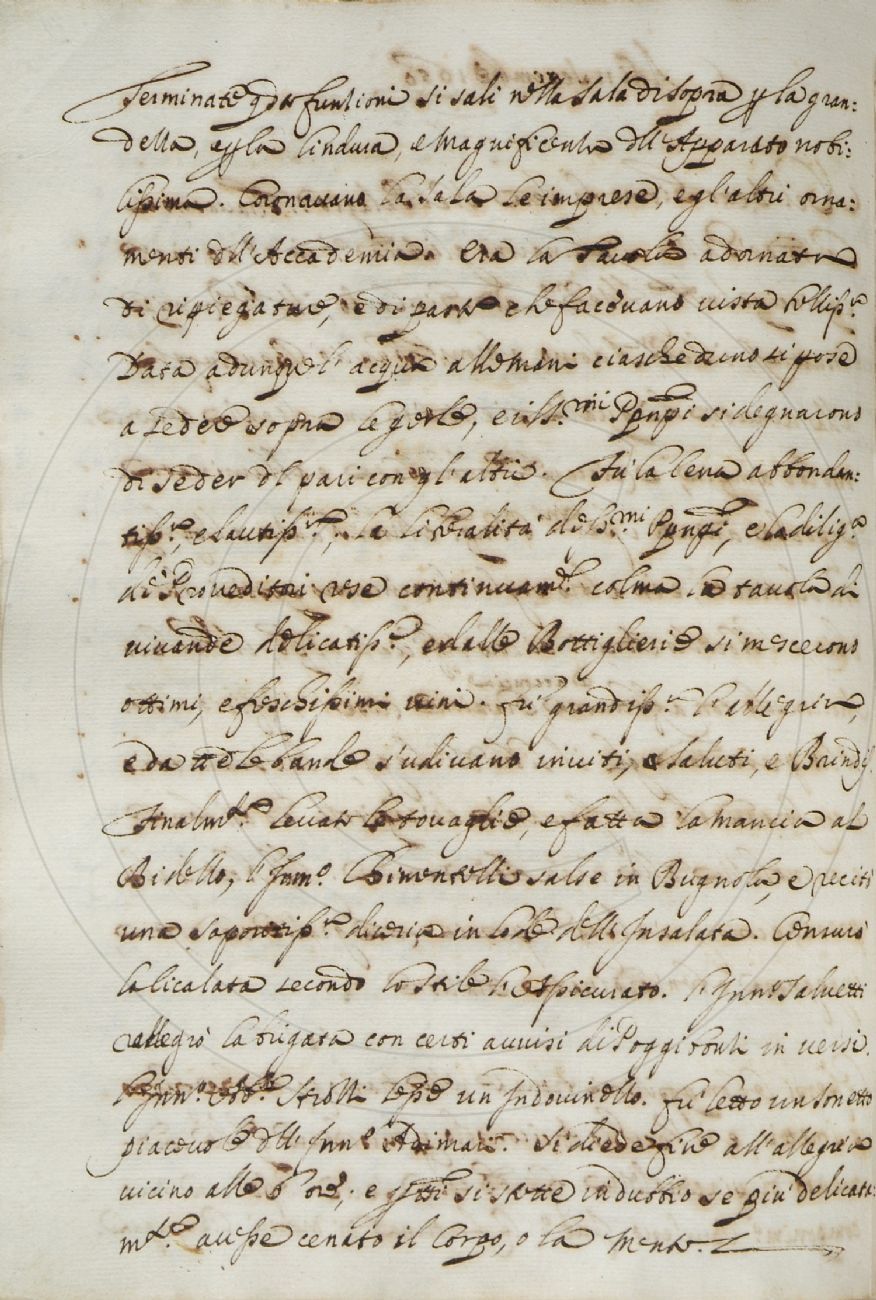 Terminate q.ste funtioni si salì nella sala di sopra p la gran:
dezza, e p la lindura, e Magnificenza dell'Apparato nobi:
lissima. Coronavano la sala le imprese, e gl'altri orna:
menti dell'Accademia. Era la Tavola adornata
di ripiegature, e di paste che facevano vista belliss.a
Data adunque l'acqua alle mani ciascheduno si pose
a sedere sopra le gerle, e i ss.mi Ppnpi si degnarono
di seder del pari con gl'altri. Fù la cena abbondan:
tiss.a, e lautiss.a, la liberalità de ss.mi Ppnpi, e la dilig.a
de Proveditori rese continuam.te colma la tavola di
vivande delicatiss.e, e dalle Bottiglierie si mescerono
ottimi, e freschissimi vini. Fù grandiss.a l'allegria,
e da tt.e le bande s'udivano inviti, e saluti, e Brindisi.
Finalm.te levate le tovaglie, e fatta la mancia al
Bidello, l'Inn.o Chimentelli salse in Bugnola, e recitò
una saporitiss.a diceria in lode dell'Insalata. Censurò
la licalata secondo lo stile l'Inspicciato. l'Inn.o Salvetti
rallegrò la brigata con certi avvisi di Poggibonsi in versi.
l'Inn.o Ab.e Strozzi lesse un Indovinello. fù letto un sonetto
piacevole dell'Inn.o Adimari. Si diede fine all'allegria
vicino alle 6 ore, e p tt.i si stette in dubbio se più delicata:
m.te avesse cenato il Corpo, o la Mente.